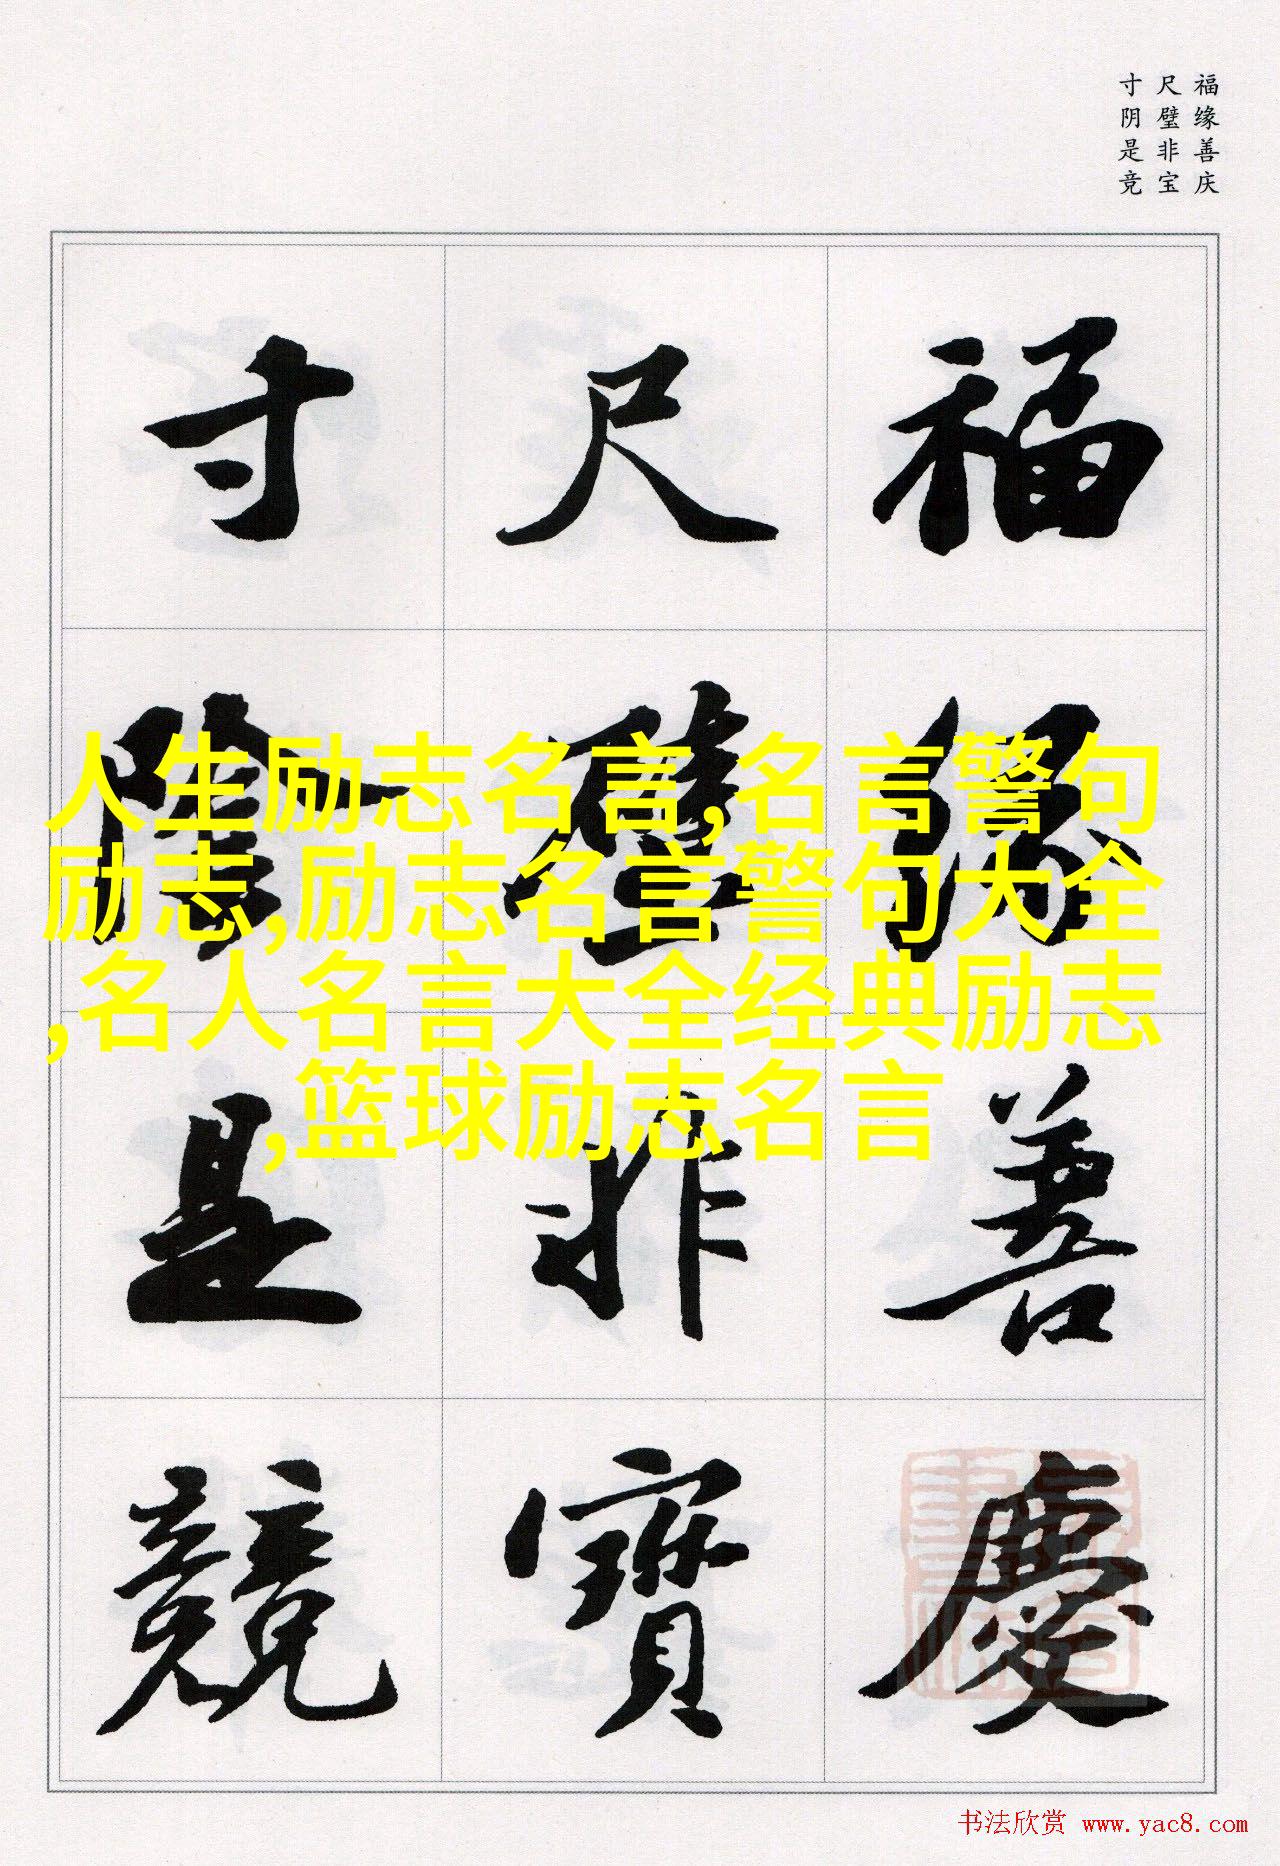 福缘善庆
尺璧非宝
寸阴是竞
福緣善慶
尺璧非寶
寸陰是競
人生励志名言,名言警句
励志,励志名言警句大全
,名人名言大全经典励志
,篮球励志名言
书法欣赏 www.yac8.com